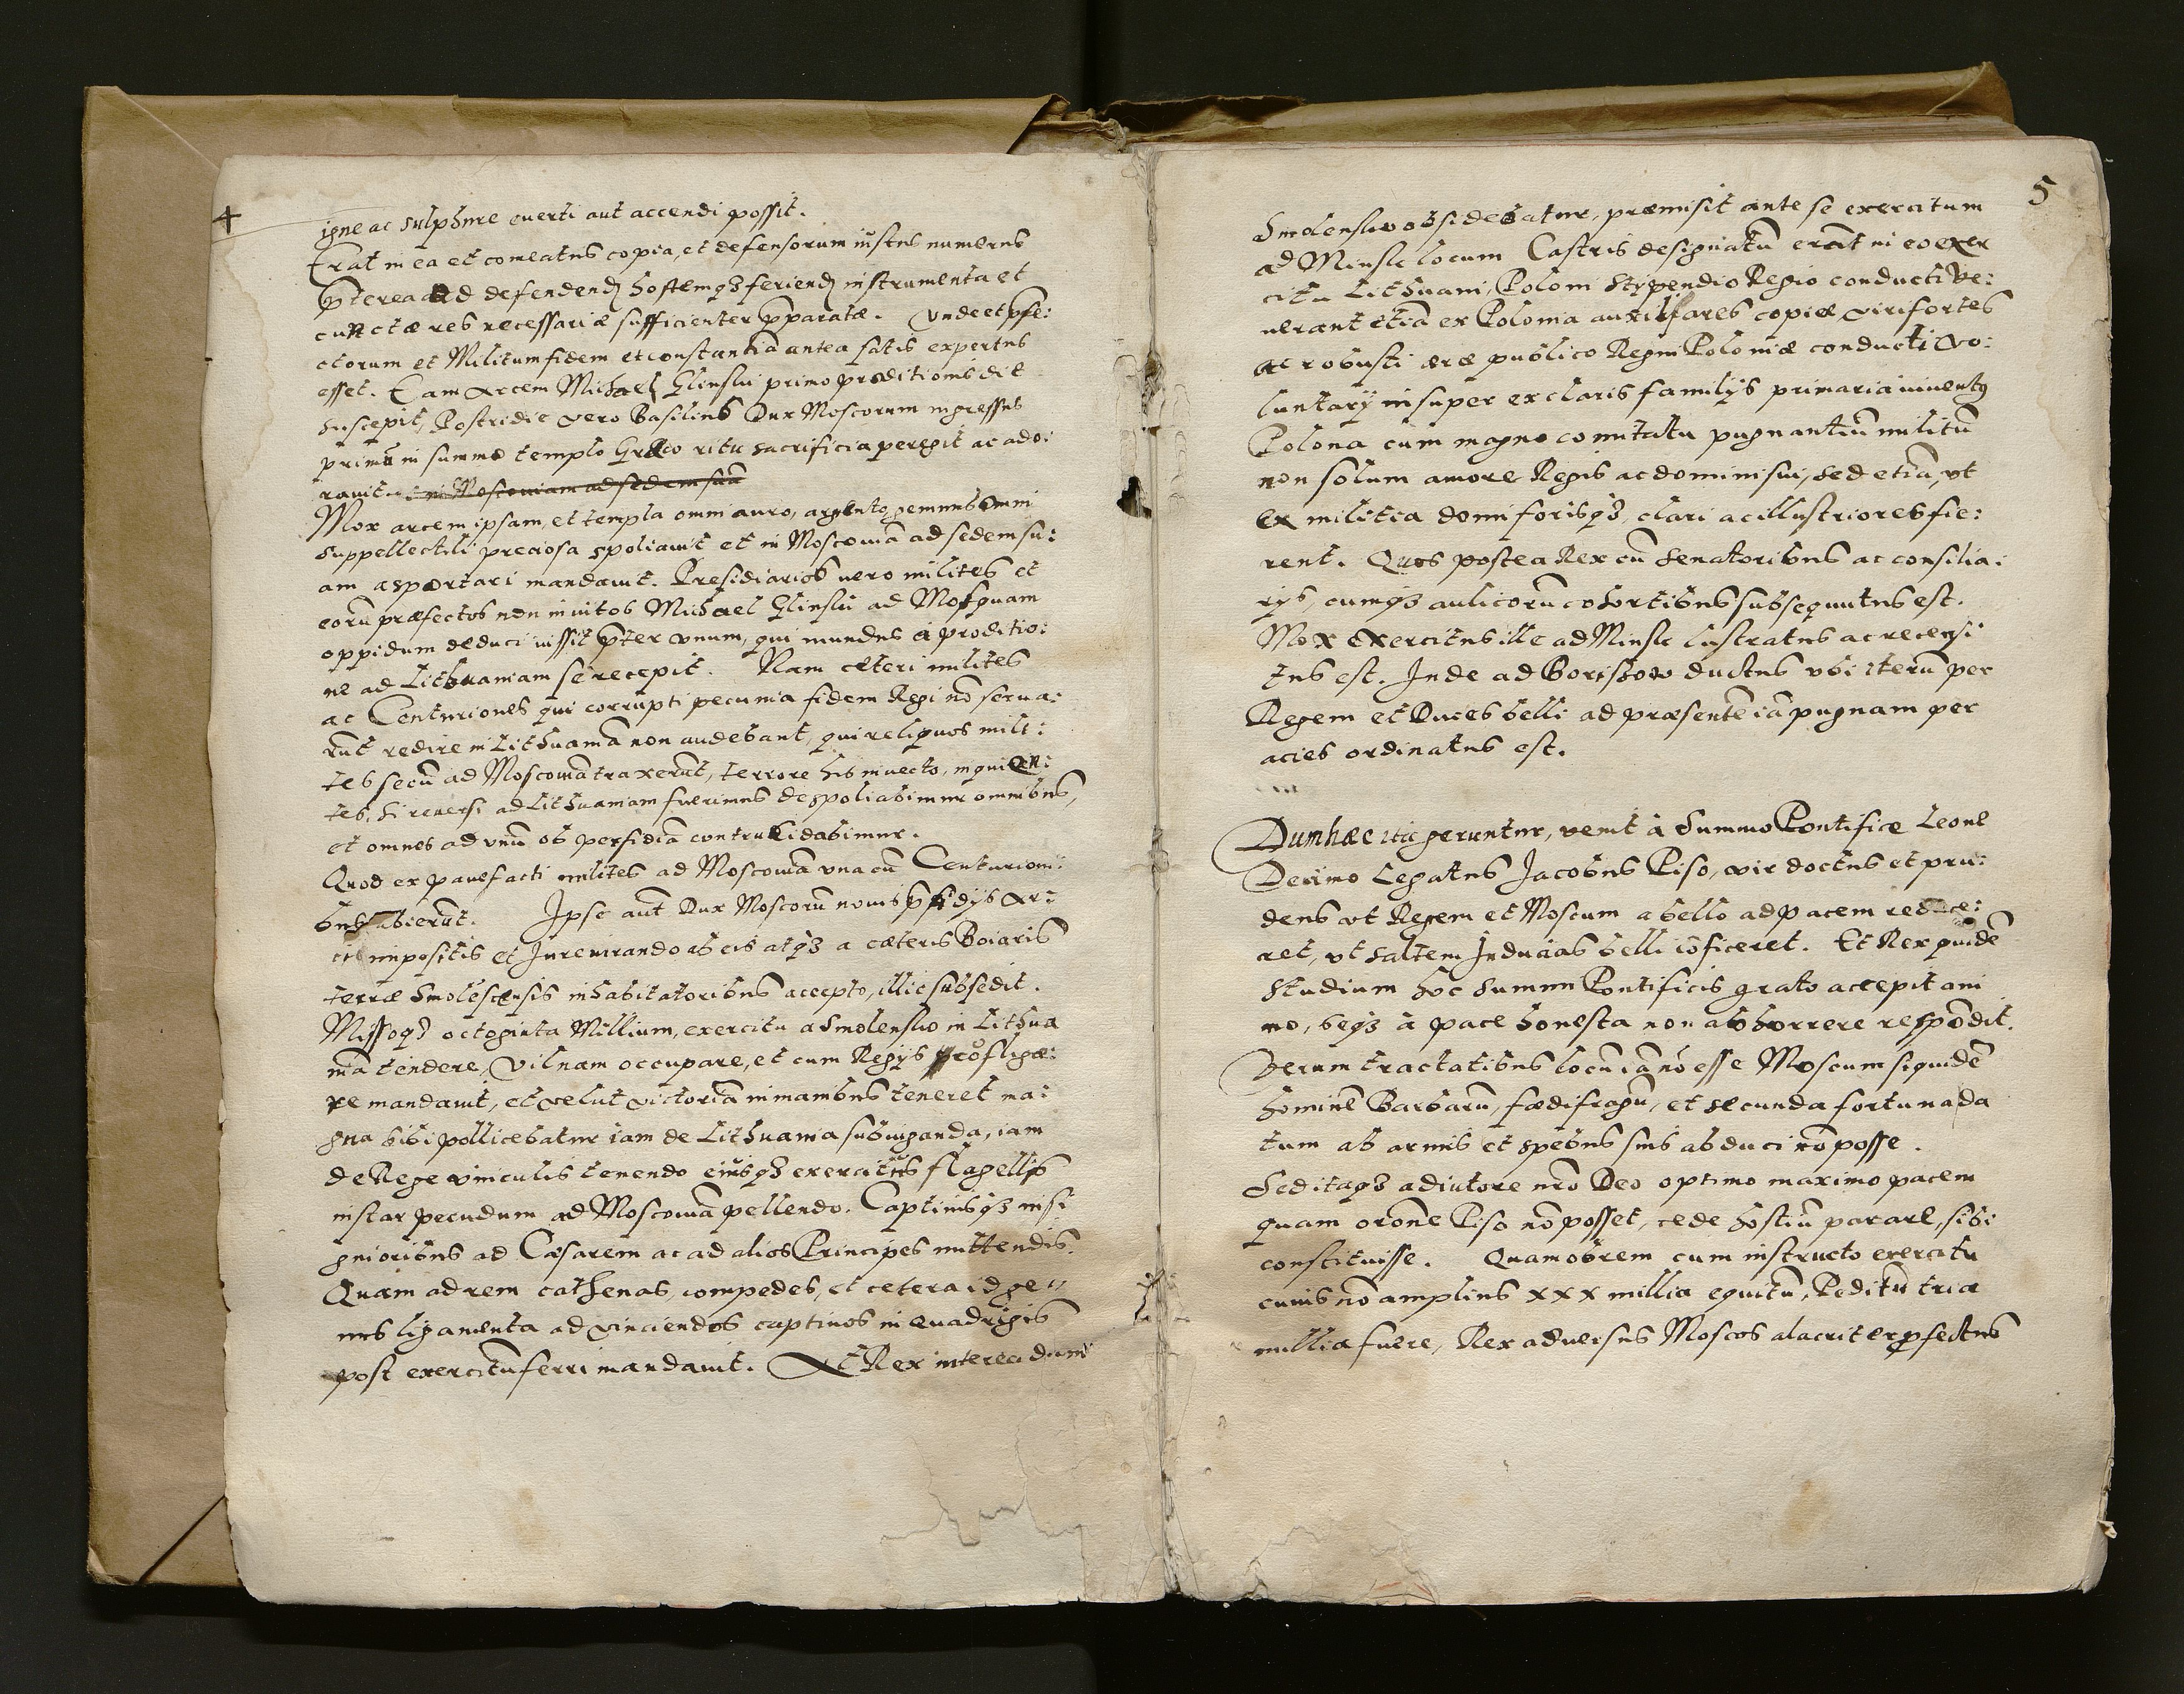 4
igne ac sulphure euerti aut accendi possit.
Erat in ea et comeatus copia, et defensorum iustus numerus
p̄terea ad defendend hostemqȝ feriend instrumenta et
cunctæ res necessariæ sufficienter p̄paratæ. Vnde et p̄fe:
ctorum et Militum fidem et constantiā antea satis expertus
esset. Eam arcem Michael Glinski primo proditionis die
suscepit, Postridie vero Basilius Dux Moscorum ingressus
primū in summo templo Græco ritu sacrificia peregit ac ado:
rauit. in Moscouiam ad sedem suā
Mox arcem ipsam, et templa omni auro, argento, gemmis omni
suppellectili preciosa spoliauit et in Moscouiā ad sedem su:
am asportari mandauit. Presidiarios uero milites et
eorū præfectos non inuitos Michael Glinski ad Mosquam
oppidum deduci iussit p̄ter vnum, qui mundus à proditio:
ne ad Lithuaniam se recepit. Nam cæteri milites
ac Centuriones qui corrupti pecunia fidem Regi nō serua:
rūt redire in Lithuaniā non audebant, qui reliquos mili:
tes secū ad Moscouiā traxerūt, terrore his iniecto, inquien:
tes, si reuersi ad Lithuaniam fuerimus despoliabimur omnibus,
et omnes ad vnū ob perfidiā contrucidabimur.
Quod expauefacti milites ad Moscouiā vna cū Centurioni:
bus abierūt. Ipse aut Dux Moscorū nouis p̄sidijs ar:
ci impositis et Jureiurando ab eis atqȝ a cæteris Boiaris
terræ Smolēscensis inhabitatoribus accepto, illic subsedit.
Missoqȝ octoginta Millium, exercitu a Smolensko in Lithua
niā tendere, Vilnam occupare, et cum Regijs profliga:
re mandauit, et velut victoriā in manibus teneret ma:
gna sibi pollicebatur iam de Lithuania subiuganda, iam
de Rege vinculis tenendo eiusqȝ exercitus flagellis
instar pecudum ad Moscouiā pellendo. Captiuisqȝ insi
gnioribus ad Cæsarem ac ad alios Principes mittendis.
Quam ad rem cathenas, compedes, et cetera id ge
nus ligamenta ad vinciendos captiuos in quadrigis
post exercitū ferri mandauit. At Rex interea dum
5
Smolensko obsidebatur, præmisit ante se exercitum
ad Minsk locum Castris designatū erat in eo exer
citu Lithuani, Poloni Stipendio Regio conducti Ve:
nerant etiā ex Polonia auxiliares copiæ, viri fortes
ac robusti ære publico Regni Poloniæ conducti vo:
luntarij insuper ex claris familijs primaria iuuentꝯ
Polona cum magno comitatu pugnantiū militū
non solum amore Regis ac domini sui, sed etiā, vt
ex militia domi forisqȝ, clari ac illustriores fie:
rent. Quos postea Rex cū Senatoribus ac consilia:
rijs, cumqȝ aulicorū cohortibus subsequutus est.
Mox Exercitus ille ad Minsk lustratus ac recensi
tus est. Inde ad Boriszow ductus vbi iterū per
Regem et Duces belli ad præsentē iā pugnam per
acies ordinatus est.
Dum hæc itā geruntur, venit à Summo Pontifice Leone
Decimo Legatus Jacobus Piso, vir doctus et pru:
dens vt Regem et Moscum a bello ad pacem reduce:
ret, vt saltem Inducias belli cōficeret. Et Rex quidē
studium hoc summi Pontificis grato accepit ani
mo, seqȝ à pace honesta non abhorrere respōdit.
Verum tractatibus locū iā nō esse Moscum siquidē
hominē Barbarū, fædifragū, et secunda fortuna da
tum ab armis et spebus suis abduci nō posse.
Sed itaqȝ adiutore nrō Deo optimo maximo pacem
quam oronē Piso nō posset, cede hostiū parare, sibi
constituisse. Quamobrem cum instructo exercitu
cuius nō amplius xxx millia equitū, Peditū tria
millia fuere, Rex aduersus Moscos alacriter p̱fectus